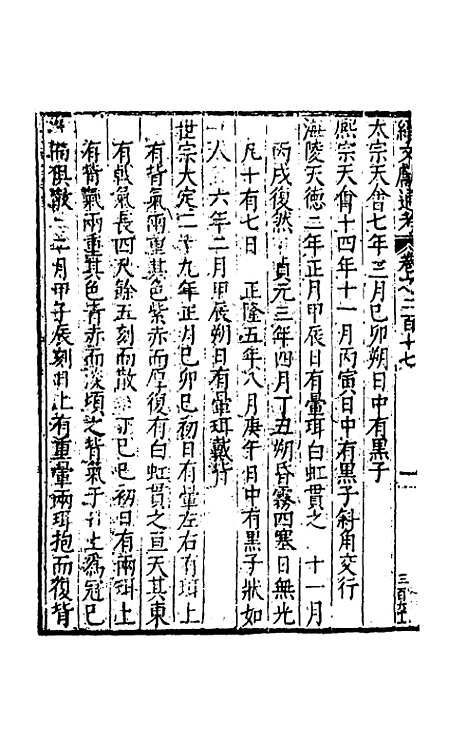 續文獻通考 卷之二百十七
太宗天會七年三月己卯朔日中有黑子
熙宗天會十四年十一月丙寅日中有黑子斜角交行
海陵天德三年正月甲辰日有暈珥白虹貫之 十一月
丙戌復然 貞元三年四月丁丑朔昏霧四塞日無光
凡十有七日 正隆五年八月庚午日中有黑子狀如
人 六年二月甲辰朔日有暈珥戴背
世宗大定二十九年正月己卯巳初日有暈左右有珥上
有背氣兩重其色紫赤而厚復有白虹貫之亘天其東
有戟氣長四尺餘五刻而散 丁巳巳初日有兩珥上
有背氣兩重其色青赤而淡頃之背氣于日上爲冠已
而俱散 二月甲子辰刻日上有重暈兩珥抱而復背